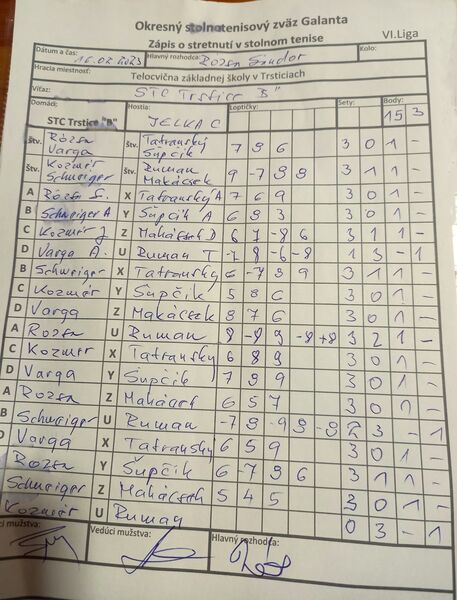 Okresný stolnotenisový zväz Galanta
Zápis o stretnutí v stolnom tenise
VI.Liga
Dátum a čas: 16.02.2023 Hlavný rozhodca: Rózsa Sándor Kolo:
Hracia miestnosť: Telocvična základnej školy v Trsticiach
Víťaz: STC Trstice "B"
Domáci: Hostia: Loptičky: Sety: Body:
STC Trstice "B" JELKA C 15 3
Štv. Rózsa Varga Štv. Tatranský Šupčík 7 9 6 3 0 1 -
Štv. Kozmér Schweiger Štv. Ruman Makácsek 9 -7 9 8 3 1 1 -
A Rózsa S. X Tatranský A 7 6 9 3 0 1 -
B Schweiger A Y Šupčík A 6 9 3 3 0 1 -
C Kozmér J Z Makácsek D 6 7 -8 6 3 1 1 -
D Varga A. U Ruman T -7 8 -6 -8 1 3 - 1
B Schweiger X Tatranský 6 -7 9 9 3 1 1 -
C Kozmér Y Šupčík 5 8 6 3 0 1 -
D Varga Z Makácsek 8 7 6 3 0 1 -
A Rózsa U Ruman 8 -8 9 -8 +8 3 2 1 -
C Kozmér X Tatranský 6 8 9 3 0 1 -
D Varga Y Šupčík 7 9 9 3 0 1 -
A Rózsa Z 6 5 7 3 0 1 -
B Schweiger U Ruman -7 9 -9 9 -9 2 3 - 1
D Varga X Tatranský 6 5 9 3 0 1 -
Rózsa Y Šupčík 6 -7 9 6 3 1 1 -
Schweiger Z Makácsek 5 4 5 3 0 1 -
Kozmér U Ruman 0 3 - 1
mužstva: Vedúci mužstva: Hlavný rozhodca: